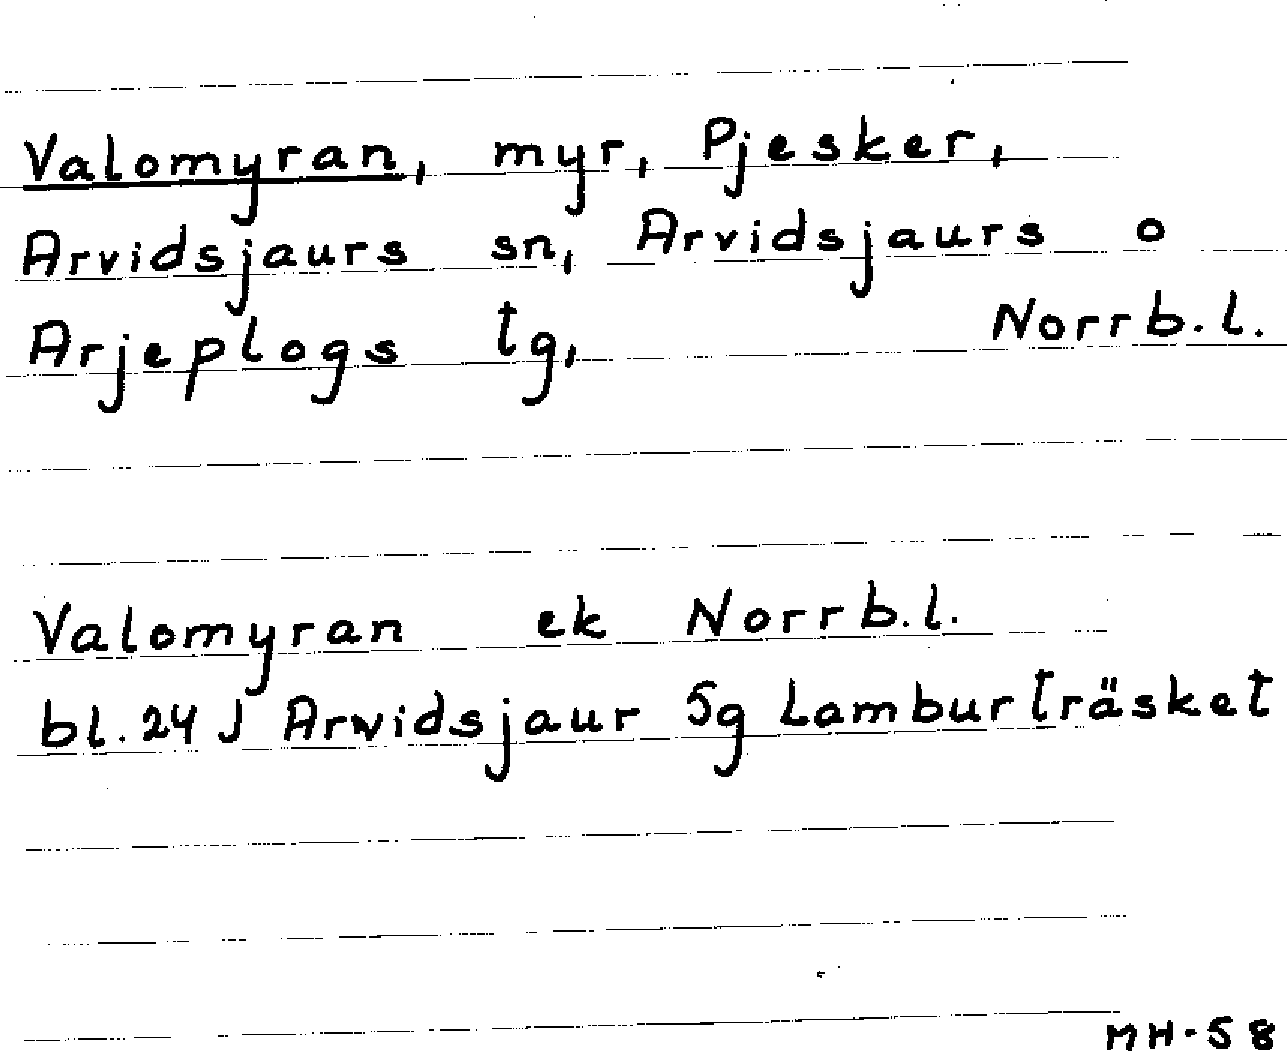 Valomyran, myr, Pjesker,
Arvidsjaurs sn, Arvidsjaurs o
Arjeplogs tg, Norrb.l.
Valomyran ek Norrb.l.
bl. 24 J Arvidsjaur 5g Lamburträsket
MH-58